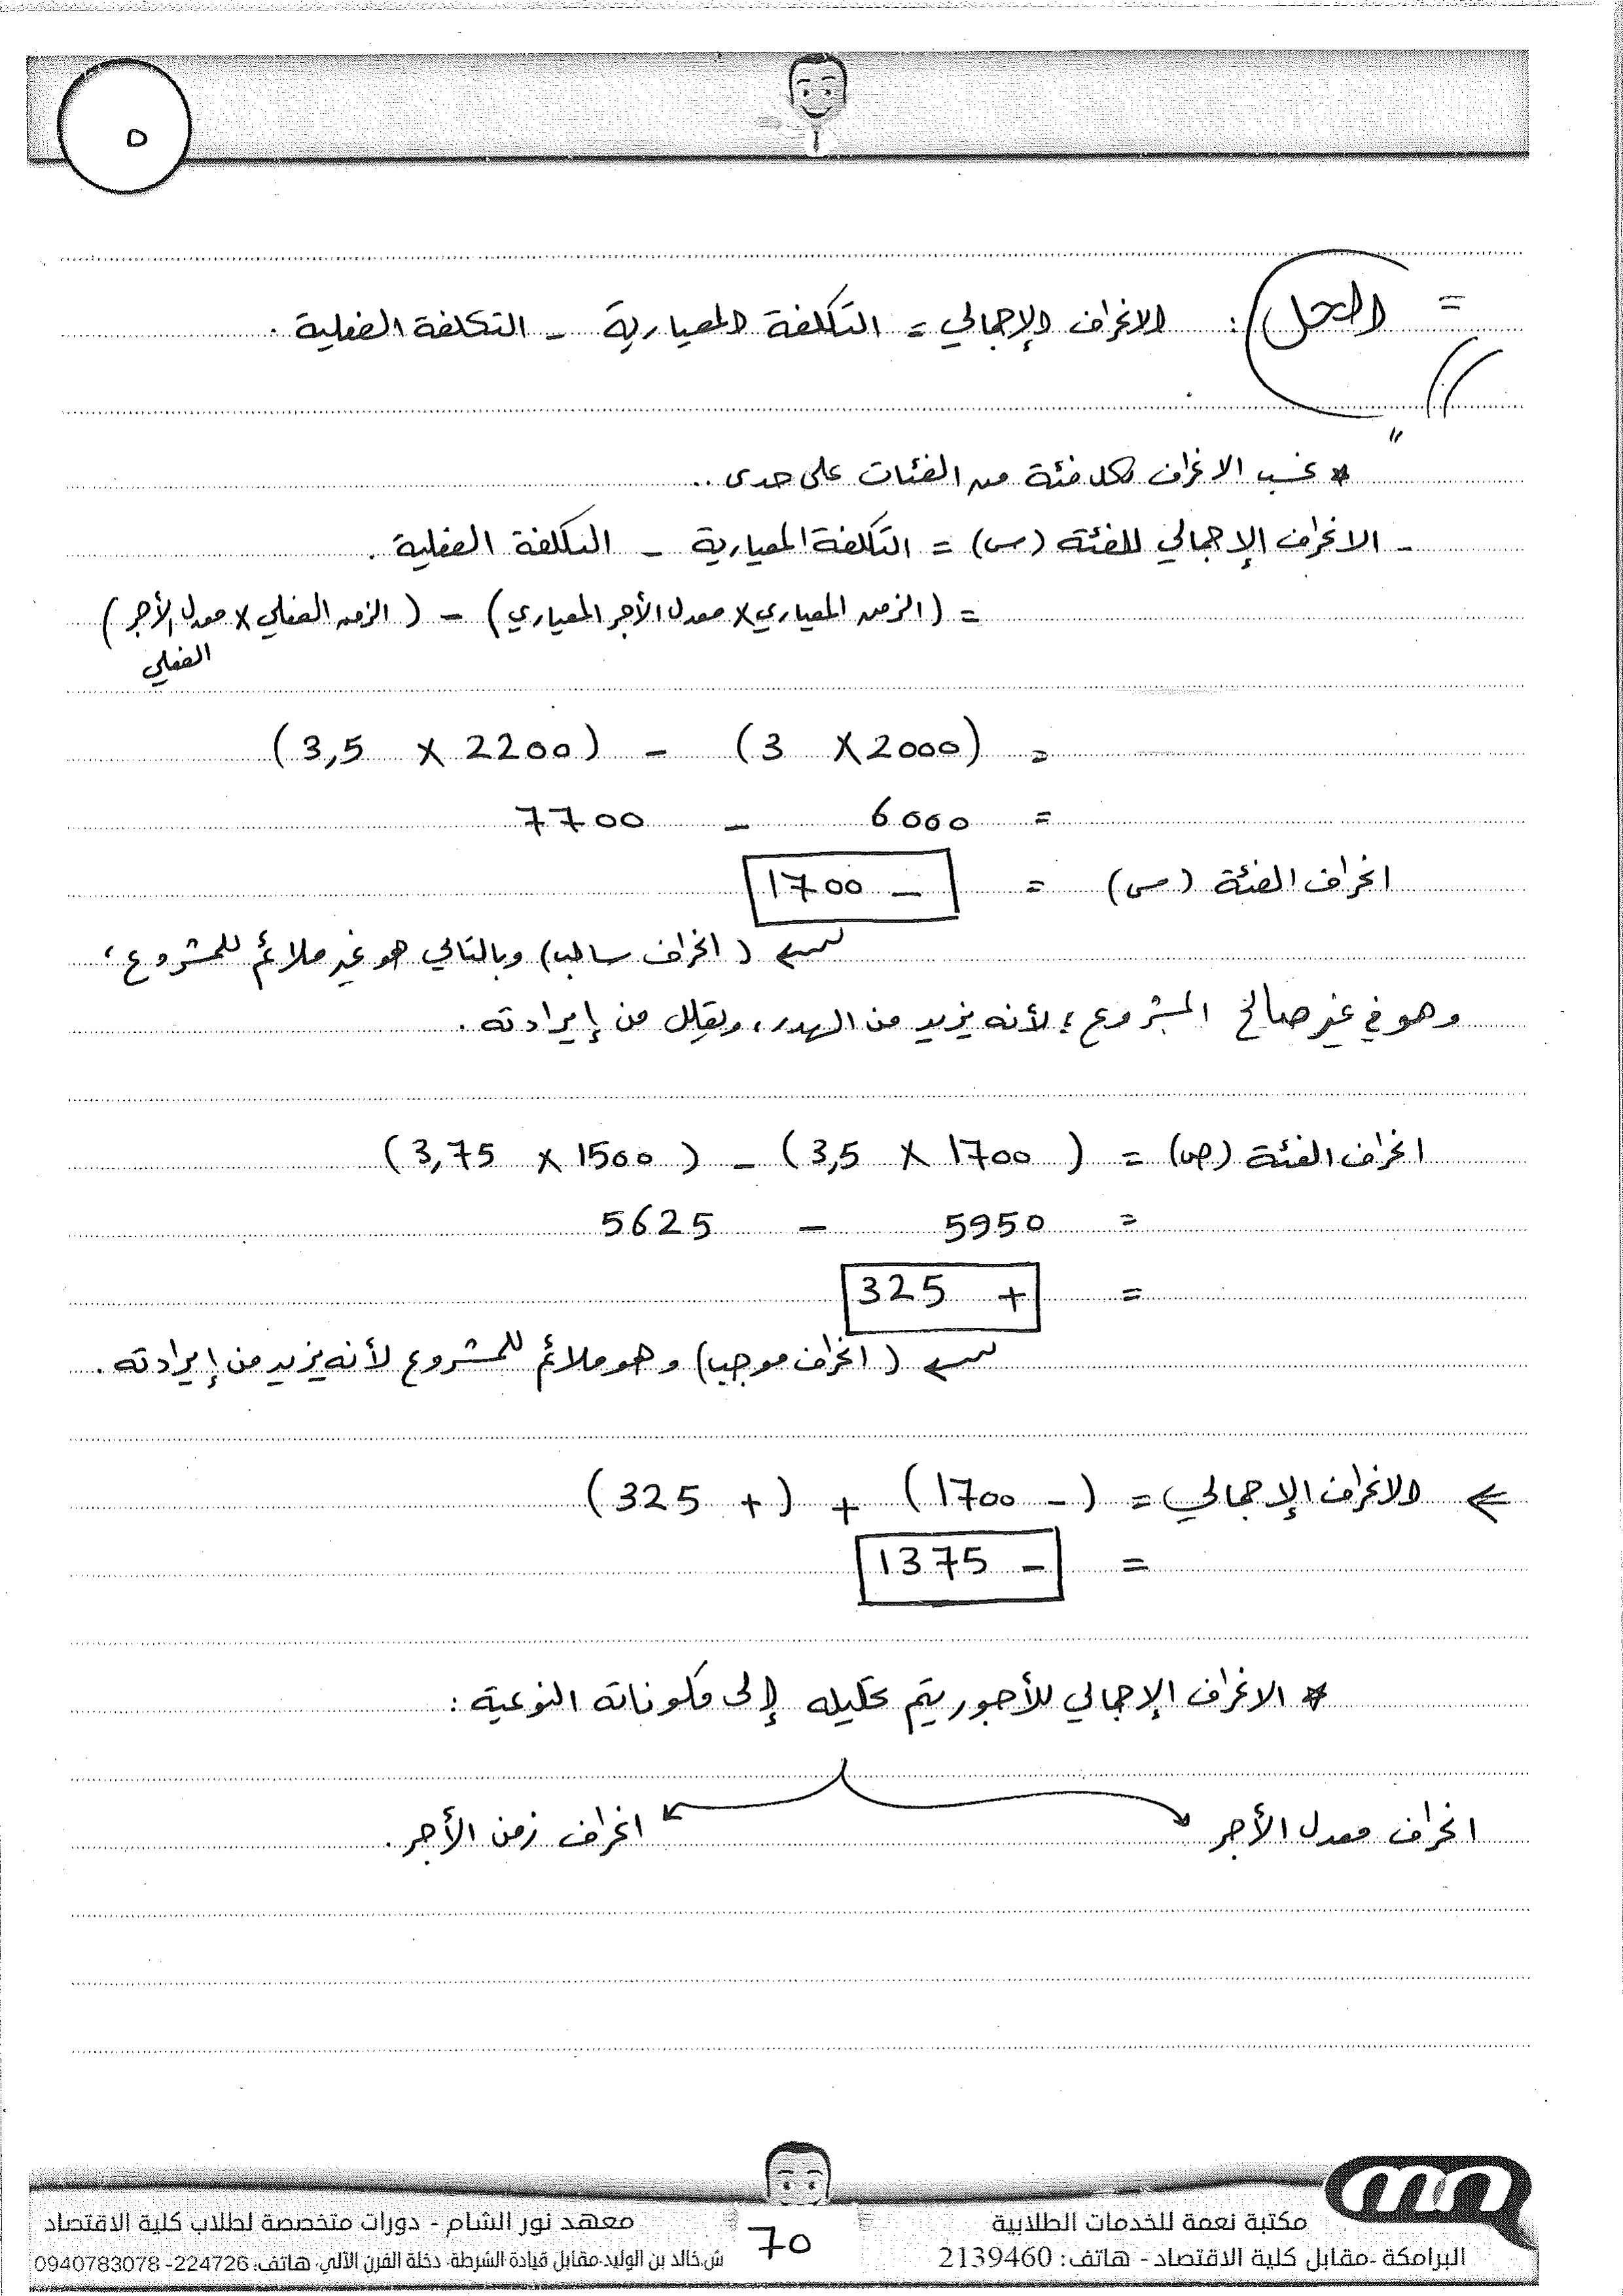 ٥
= الحل: الانحراف الإجمالي = التكلفة المعيارية - التكلفة الفعلية.
* نحسب الانحراف لكل فئة من الفئات على حدى..
- الانحراف الإجمالي للفئة (س) = التكلفة المعيارية - التكلفة الفعلية.
= (الزمن المعياري × معدل الأجر المعياري) - (الزمن الفعلي × معدل الأجر الفعلي)
= (2000 × 3) - (2200 × 3,5)
= 6000 - 7700
انحراف الفئة (س) = - 1700
(انحراف سالب) وبالتالي هو غير ملائم للمشروع،
وهو في غير صالح المشروع؛ لأنه يزيد من الهدر، ويقلل من إيرادته.
انحراف الفئة (ص) = (1700 × 3,5) - (1500 × 3,75)
= 5950 - 5625
= + 325
(انحراف موجب) وهو ملائم للمشروع لأنه يزيد من إيرادته.
الانحراف الإجمالي = (- 1700) + (+ 325)
= - 1375
* الانحراف الإجمالي للأجور يتم تحليله إلى مكوناته النوعية:
انحراف معدل الأجر انحراف زمن الأجر.
مكتبة نعمة للخدمات الطلابية
البرامكة -مقابل كلية الاقتصاد - هاتف: 2139460
70
معهد نور الشام - دورات متخصصة لطلاب كلية الاقتصاد
ش.خالد بن الوليد-مقابل قيادة الشرطة- دخلة الفرن الآلي- هاتف: 224726- 0940783078